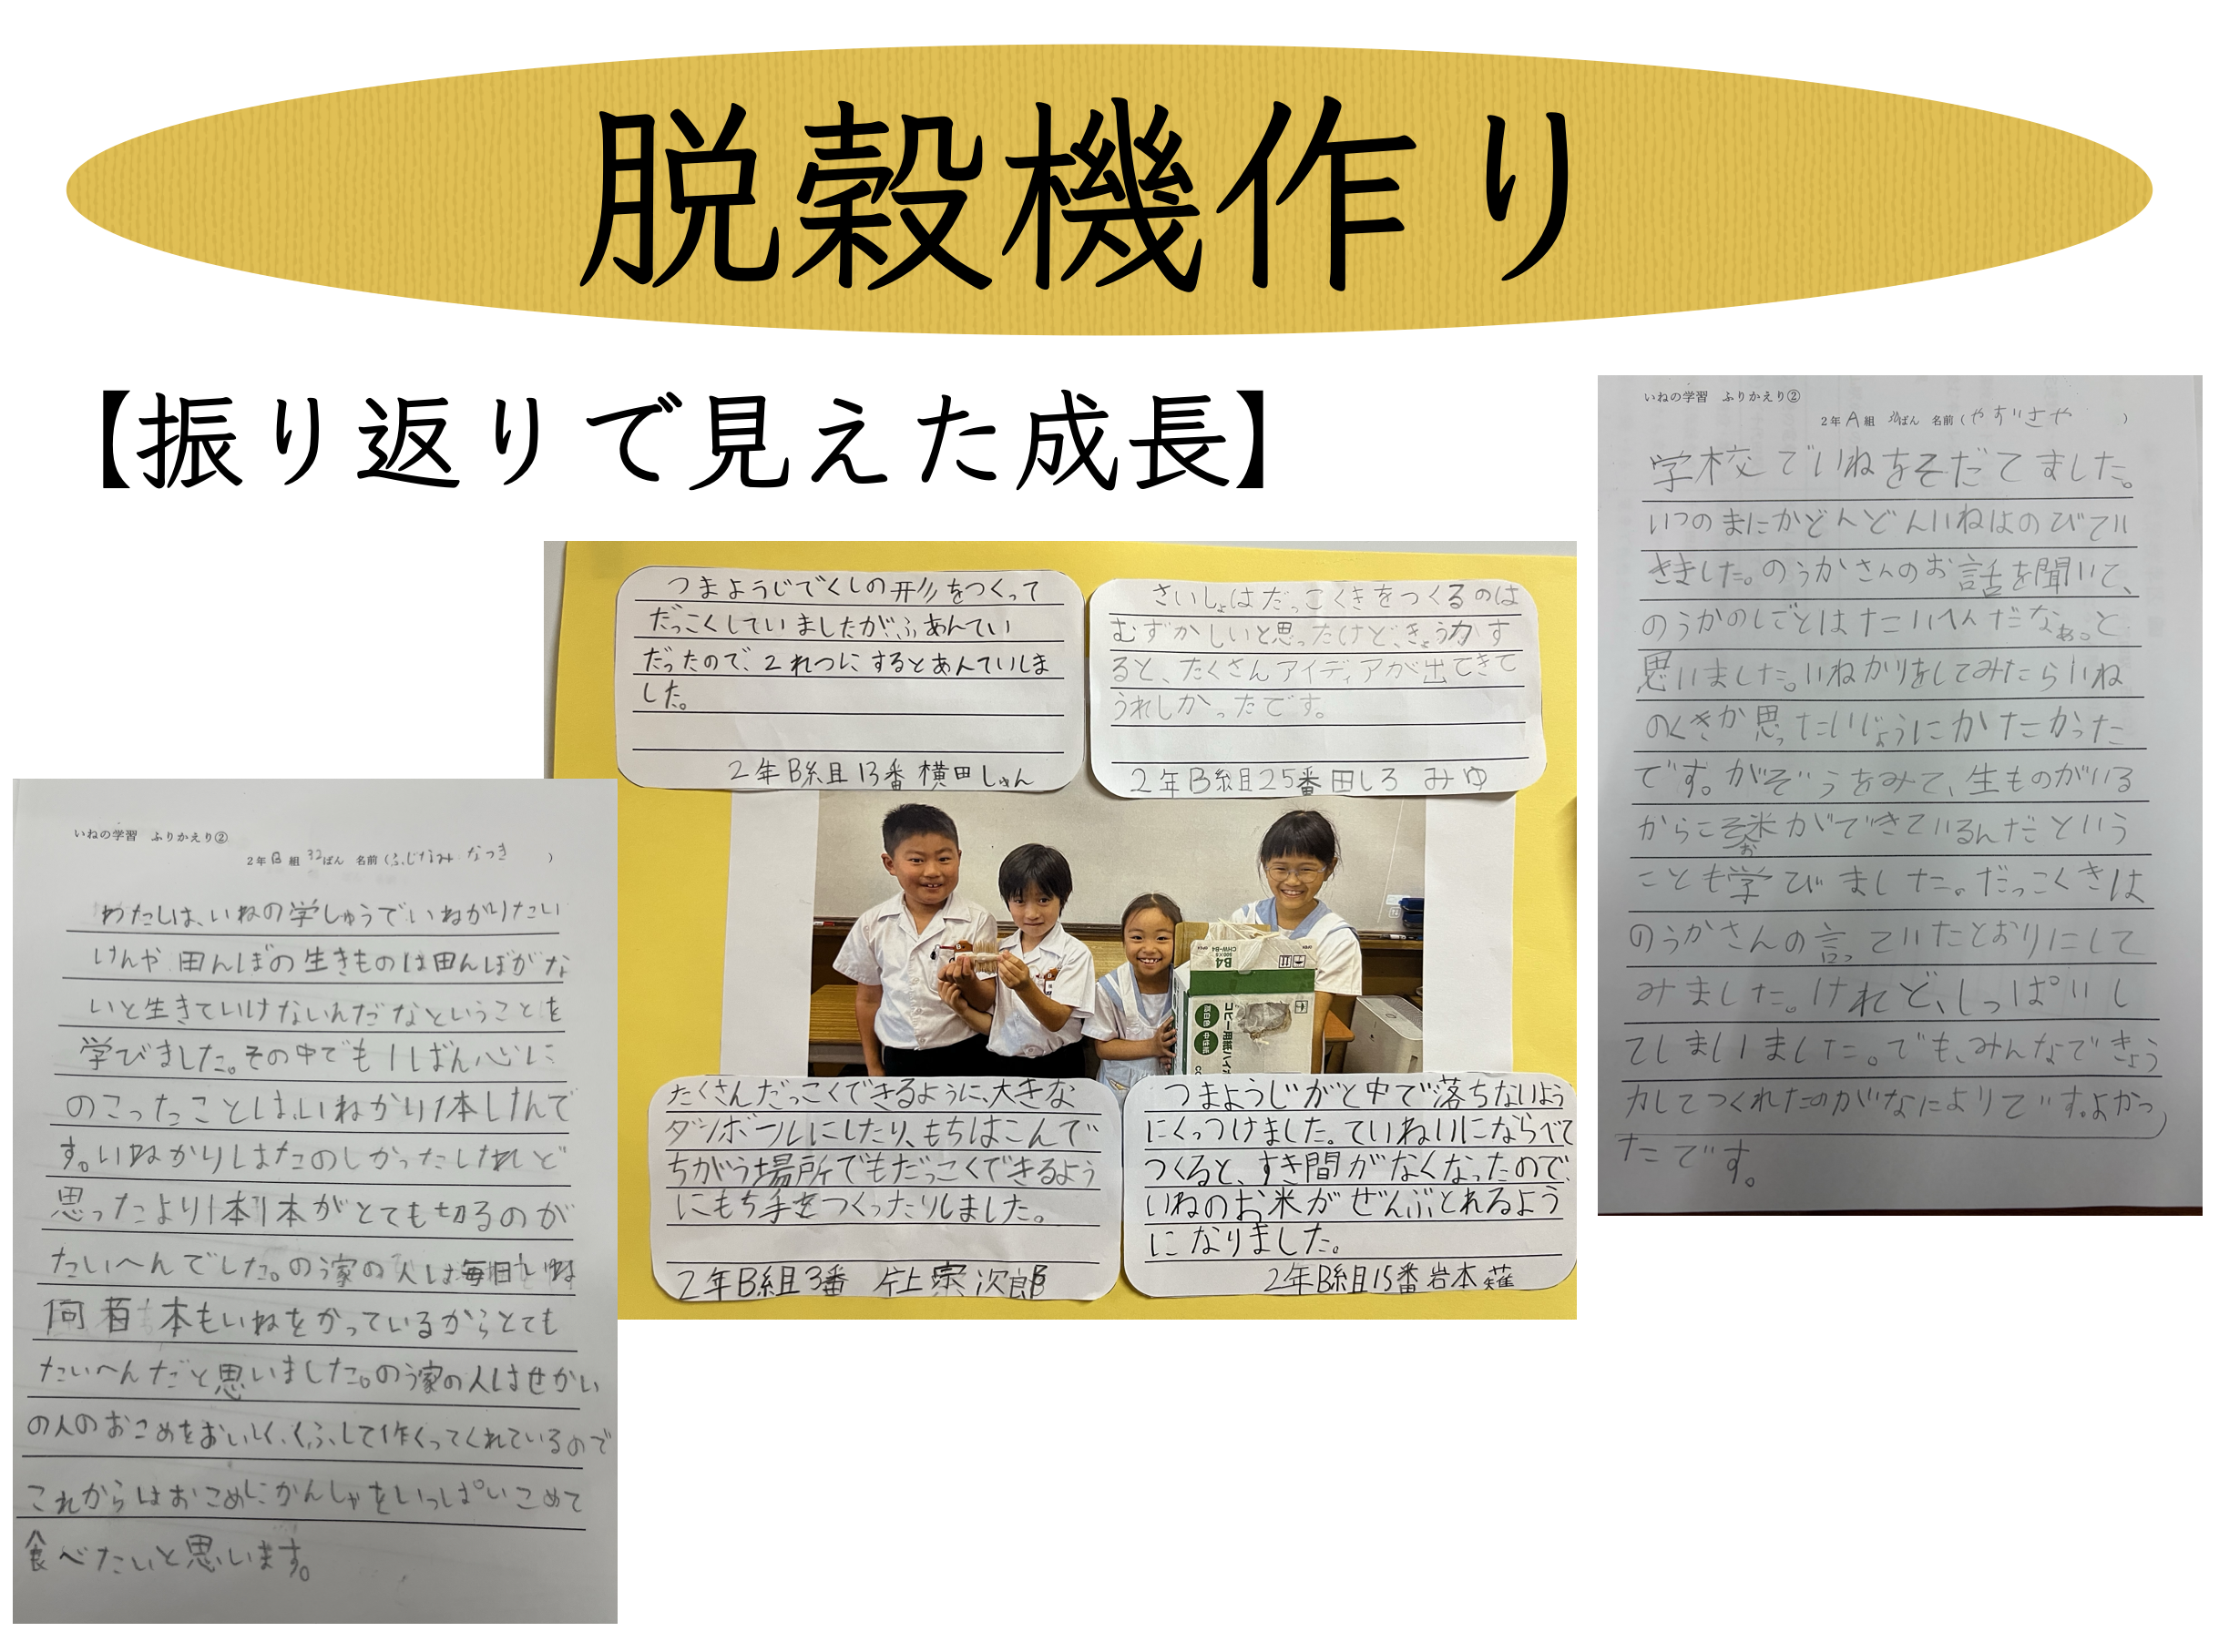 脱穀機作り
【振り返りで見えた成長】
つまようじでくしの形をつくって
だっこくしていましたがふあんてい
だったので、2れつにするとあんていしま
した。
2年B組13番 横田しゅん
さいしょはだっこくきをつくるのは
むずかしいと思ったけど、きょう力す
ると、たくさんアイディアが出てきて
うれしかったです。
2年B組25番田しろ みゆ
B4
コピー用紙ハイ
たくさんだっこくできるように、大きな
ダンボールにしたり、もちはこんで
ちがう場所でもだっこくできるよう
にもち手をつくったりしました。
2年B組3番 宗次郎
つまようじがと中で落ちないよう
にくっつけました。ていねいにならべて
つくると、すき間がなくなったので、
いねのお米がぜんぶとれるよう
になりました。
2年B組15番岩本
いねの学習 ふりかえり②
2年B組 32ばん 名前(ふじなみ なつき)
わたしは、いねの学しゅうでいねがりたい
けんや田んぼの生きものは田んぼがな
いと生きていけないんだなということを
学びました。その中でも1ばん心に
のこったことは、いねかり体けんで
す。いねかりはたのしかったけれど
思ったより1本1本がとても切るのが
たいへんでした。のう家の人は毎日いね
何百本もいねをかっているからとても
たいへんだと思いました。のう家の人はせかい
の人のおこめをおいしく、くふして作くってくれているので
これからはおこめにかんしゃをいっぱいこめて
食べたいと思います。
いねの学習 ふりかえり②
2年A組 ばん 名前(やすいさや)
学校でいねをそだてました。
いつのまにかどんどんいねはのびてい
ききした。のうかさんのお話を聞いて、
のうかのしごとはたいへんだなぁっと
思いました。いねかりをしてみたらいね
のくきか思ったいじょうにかたかった
です。がぞうをみて、生ものがいる
からこそお米ができているんだという
ことも学びました。だっこくきは
のうかさんの言っていたとおりにして
みました。けれど、しっぱいし
てしまいました。でも、みんなできょう
力してつくれたのがなによりです。よかっ
たです。